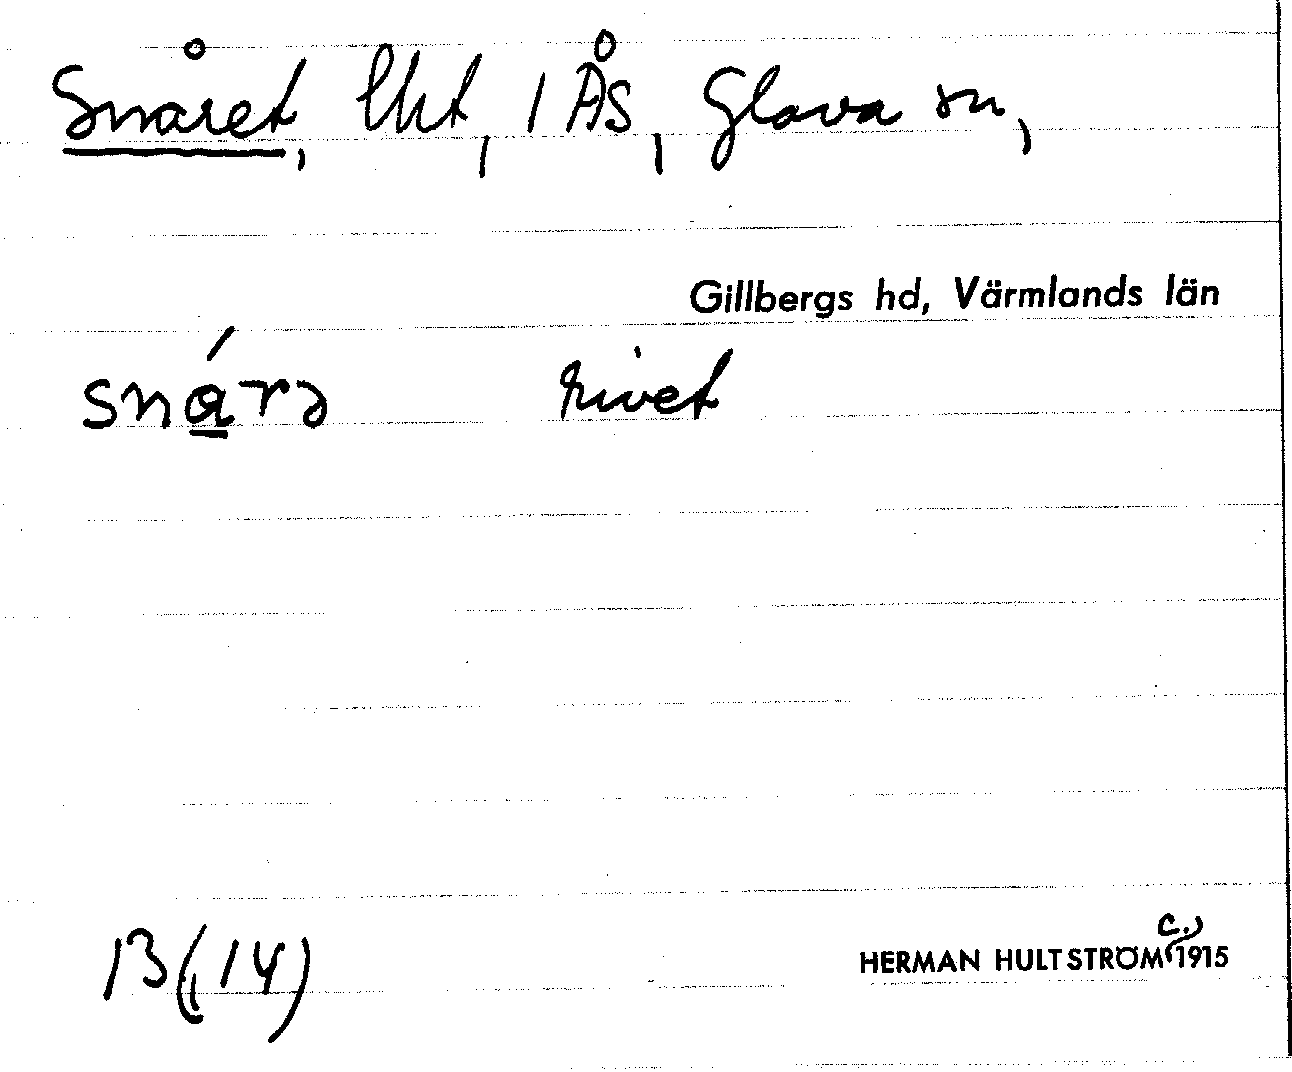 Snåret, lht, i Ås, Glava sn,
Gillbergs hd, Värmlands län
snárə rivet
B(14)
c.)
HERMAN HULTSTRÖM 1915